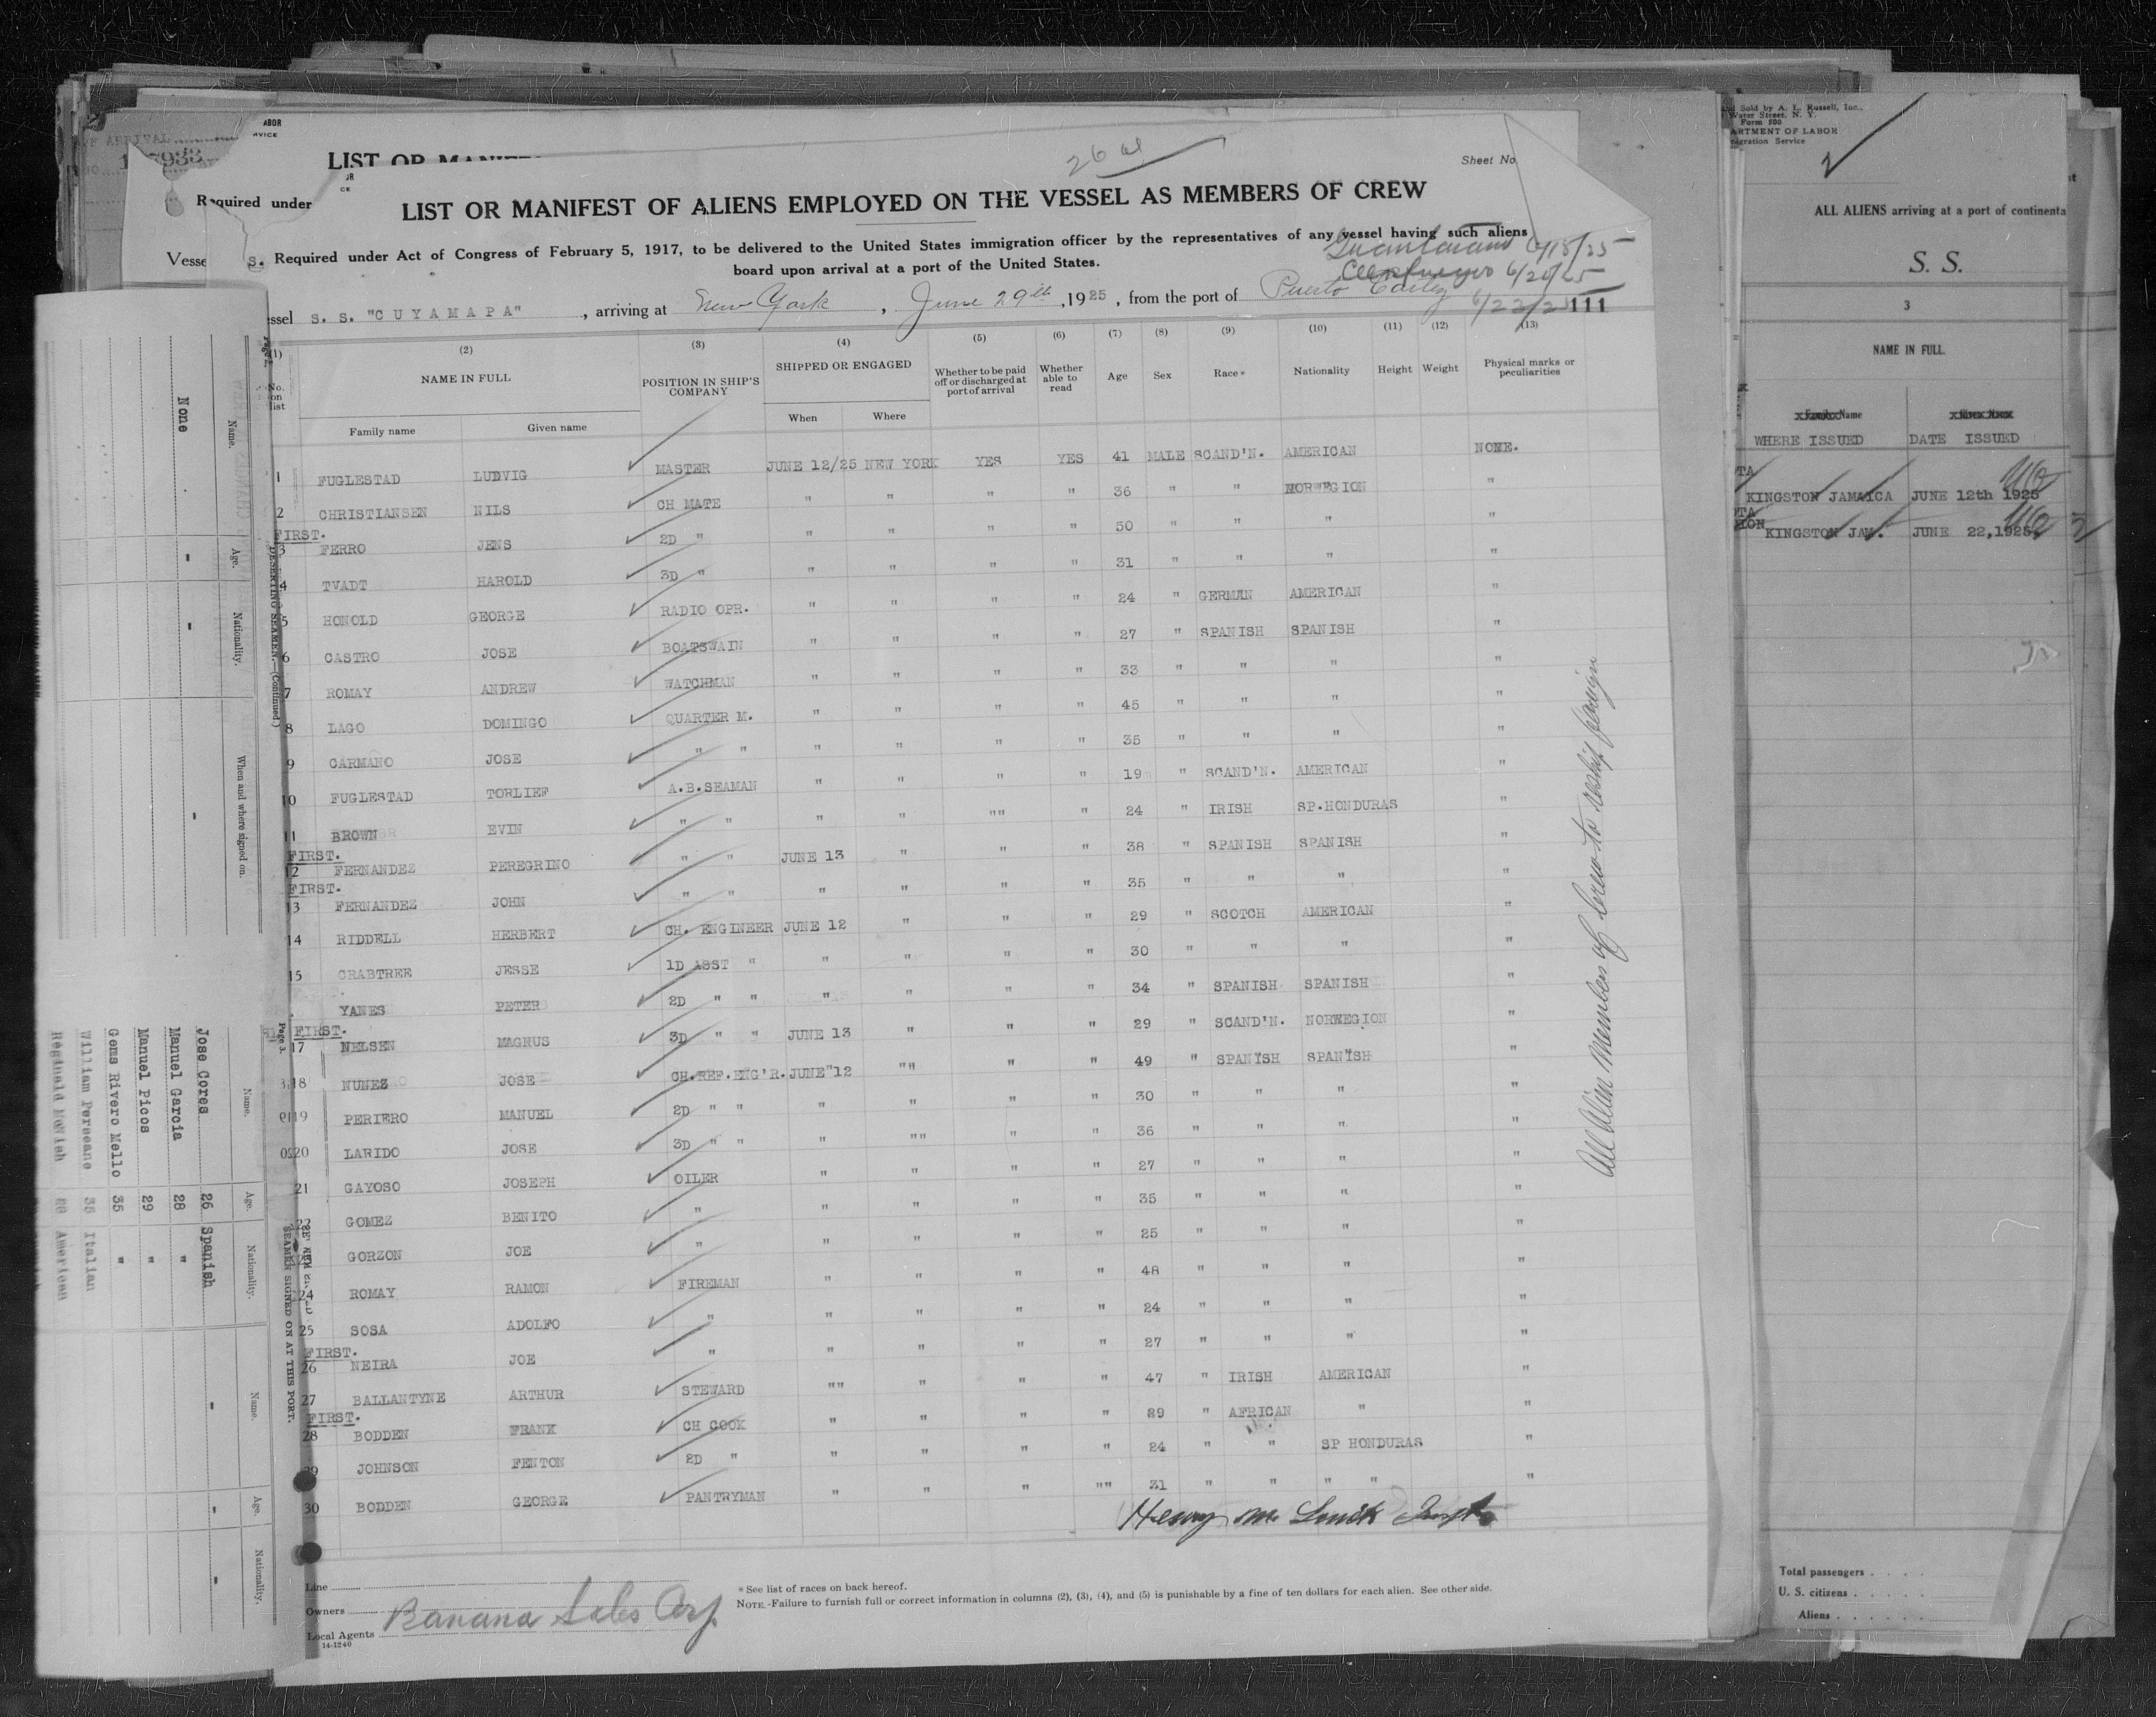 26 al
Sheet No.
LIST OR MANIFEST OF ALIENS EMPLOYED ON THE VESSEL AS MEMBERS OF CREW
Required under Act of Congress of February 5, 1917, to be delivered to the United States immigration officer by the representatives of any vessel having such aliens
board upon arrival at a port of the United States.
Guantanamo 6/18/25
Cienfuegos 6/20/25
ssel S. S. "CUYAMAPA", arriving at New York, June 29th, 1925, from the port of Puerto Cortez 6/22/25 111
(1) (2) (3) (4) (5) (6) (7) (8) (9) (10) (11) (12) (13)
No. on list NAME IN FULL POSITION IN SHIP'S COMPANY SHIPPED OR ENGAGED Whether to be paid off or discharged at port of arrival Whether able to read Age Sex Race* Nationality Height Weight Physical marks or peculiarities
Family name Given name When Where
1 FUGLESTAD LUDVIG MASTER JUNE 12/25 NEW YORK YES YES 41 MALE SCAND'N. AMERICAN NONE.
2 CHRISTIANSEN NILS CH MATE " " " " 36 " " NORWEGION "
FIRST.
3 FERRO JENS 2D " " " " " 50 " " " "
4 TVADT HAROLD 3D " " " " " 31 " " " "
5 HONOLD GEORGE RADIO OPR. " " " " 24 " GERMAN AMERICAN "
6 CASTRO JOSE BOATSWAIN " " " " 27 " SPANISH SPANISH "
7 ROMAY ANDREW WATCHMAN " " " " 33 " " " "
8 LAGO DOMINGO QUARTER M. " " " " 45 " " " "
9 CARMANO JOSE " " " " " " 35 " " " "
10 FUGLESTAD TORLIEF A.B.SEAMAN " " " " 19 " SCAND'N. AMERICAN "
11 BROWN EVIN " " " " "" " 24 " IRISH SP.HONDURAS "
FIRST.
12 FERNANDEZ PEREGRINO " " JUNE 13 " " " 38 " SPANISH SPANISH "
FIRST.
13 FERNANDEZ JOHN " " " " " " 35 " " " "
14 RIDDELL HERBERT CH. ENGINEER JUNE 12 " " " 29 " SCOTCH AMERICAN "
15 CRABTREE JESSE 1D ASST " " " " " 30 " " " "
YANES PETER 2D " " " " " " 34 " SPANISH SPANISH "
FIRST.
17 NELSEN MAGNUS 3D " " JUNE 13 " " " 29 " SCAND'N. NORWEGION "
18 NUNEZ JOSE CH.REF.ENG'R. JUNE"12 "" " " 49 " SPANISH SPANISH "
19 PERIERO MANUEL 2D " " " " " " 30 " " " "
20 LARIDO JOSE 3D " " " "" " " 36 " " " "
21 GAYOSO JOSEPH OILER " " " " 27 " " " "
22 GOMEZ BENITO " " " " " 35 " " " "
GORZON JOE " " " " " 25 " " " "
24 ROMAY RAMON FIREMAN " " " " 48 " " " "
25 SOSA ADOLFO " " " " " 24 " " " "
FIRST.
26 NEIRA JOE " " " " " 27 " " " "
27 BALLANTYNE ARTHUR STEWARD "" " " " 47 " IRISH AMERICAN "
FIRST.
28 BODDEN FRANK CH COOK " " " " 29 " AFRICAN " "
29 JOHNSON FENTON 2D " " " " " 24 " " SP HONDURAS "
30 BODDEN GEORGE PANTRYMAN " " " "" 31 " " " " "
All Alien Members of Crew to reship foreign
Line
Owners
Banana Sales Corp
Local Agents
14-1240
*See list of races on back hereof.
NOTE.-Failure to furnish full or correct information in columns (2), (3), (4), and (5) is punishable by a fine of ten dollars for each alien. See other side.
LIST OR MANIF
Required under
Vesse
Name. Age. Nationality. When and where signed on.
None
DESERTING SEAMEN.—(Continued.)
Page 3.
SEAMEN SIGNED ON AT THIS PORT.
Name. Age. Nationality. Name. Age. Nationality.
Jose Cores 26 Spanish
Manuel Garcia 28 "
Manuel Picos 29 "
Gems Rivero Mello 35 "
William Perseano 35 Italian
American
Sold by A. L. Russell, Inc.,
Water Street, N. Y.
Form 500
ARTMENT OF LABOR
migration Service
ALL ALIENS arriving at a port of continenta
S. S.
3
NAME IN FULL.
Family Name Given Name
WHERE ISSUED DATE ISSUED
KINGSTON JAMAICA JUNE 12th 1925
KINGSTON JAM. JUNE 22,1925
Total passengers
U. S. citizens
Aliens